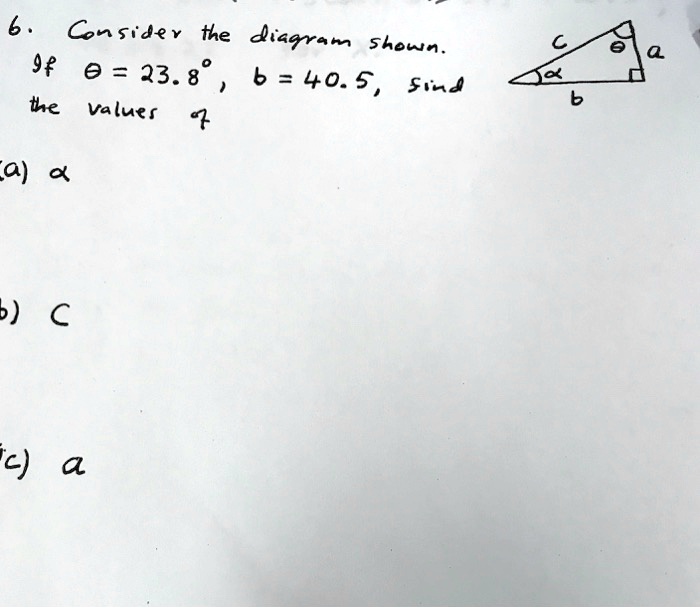 6. Consider the diagram shown.
If θ = 23.8°, b = 40.5, find
the values of
c
θ
a
α
b
(a) α
b) c
(c) a